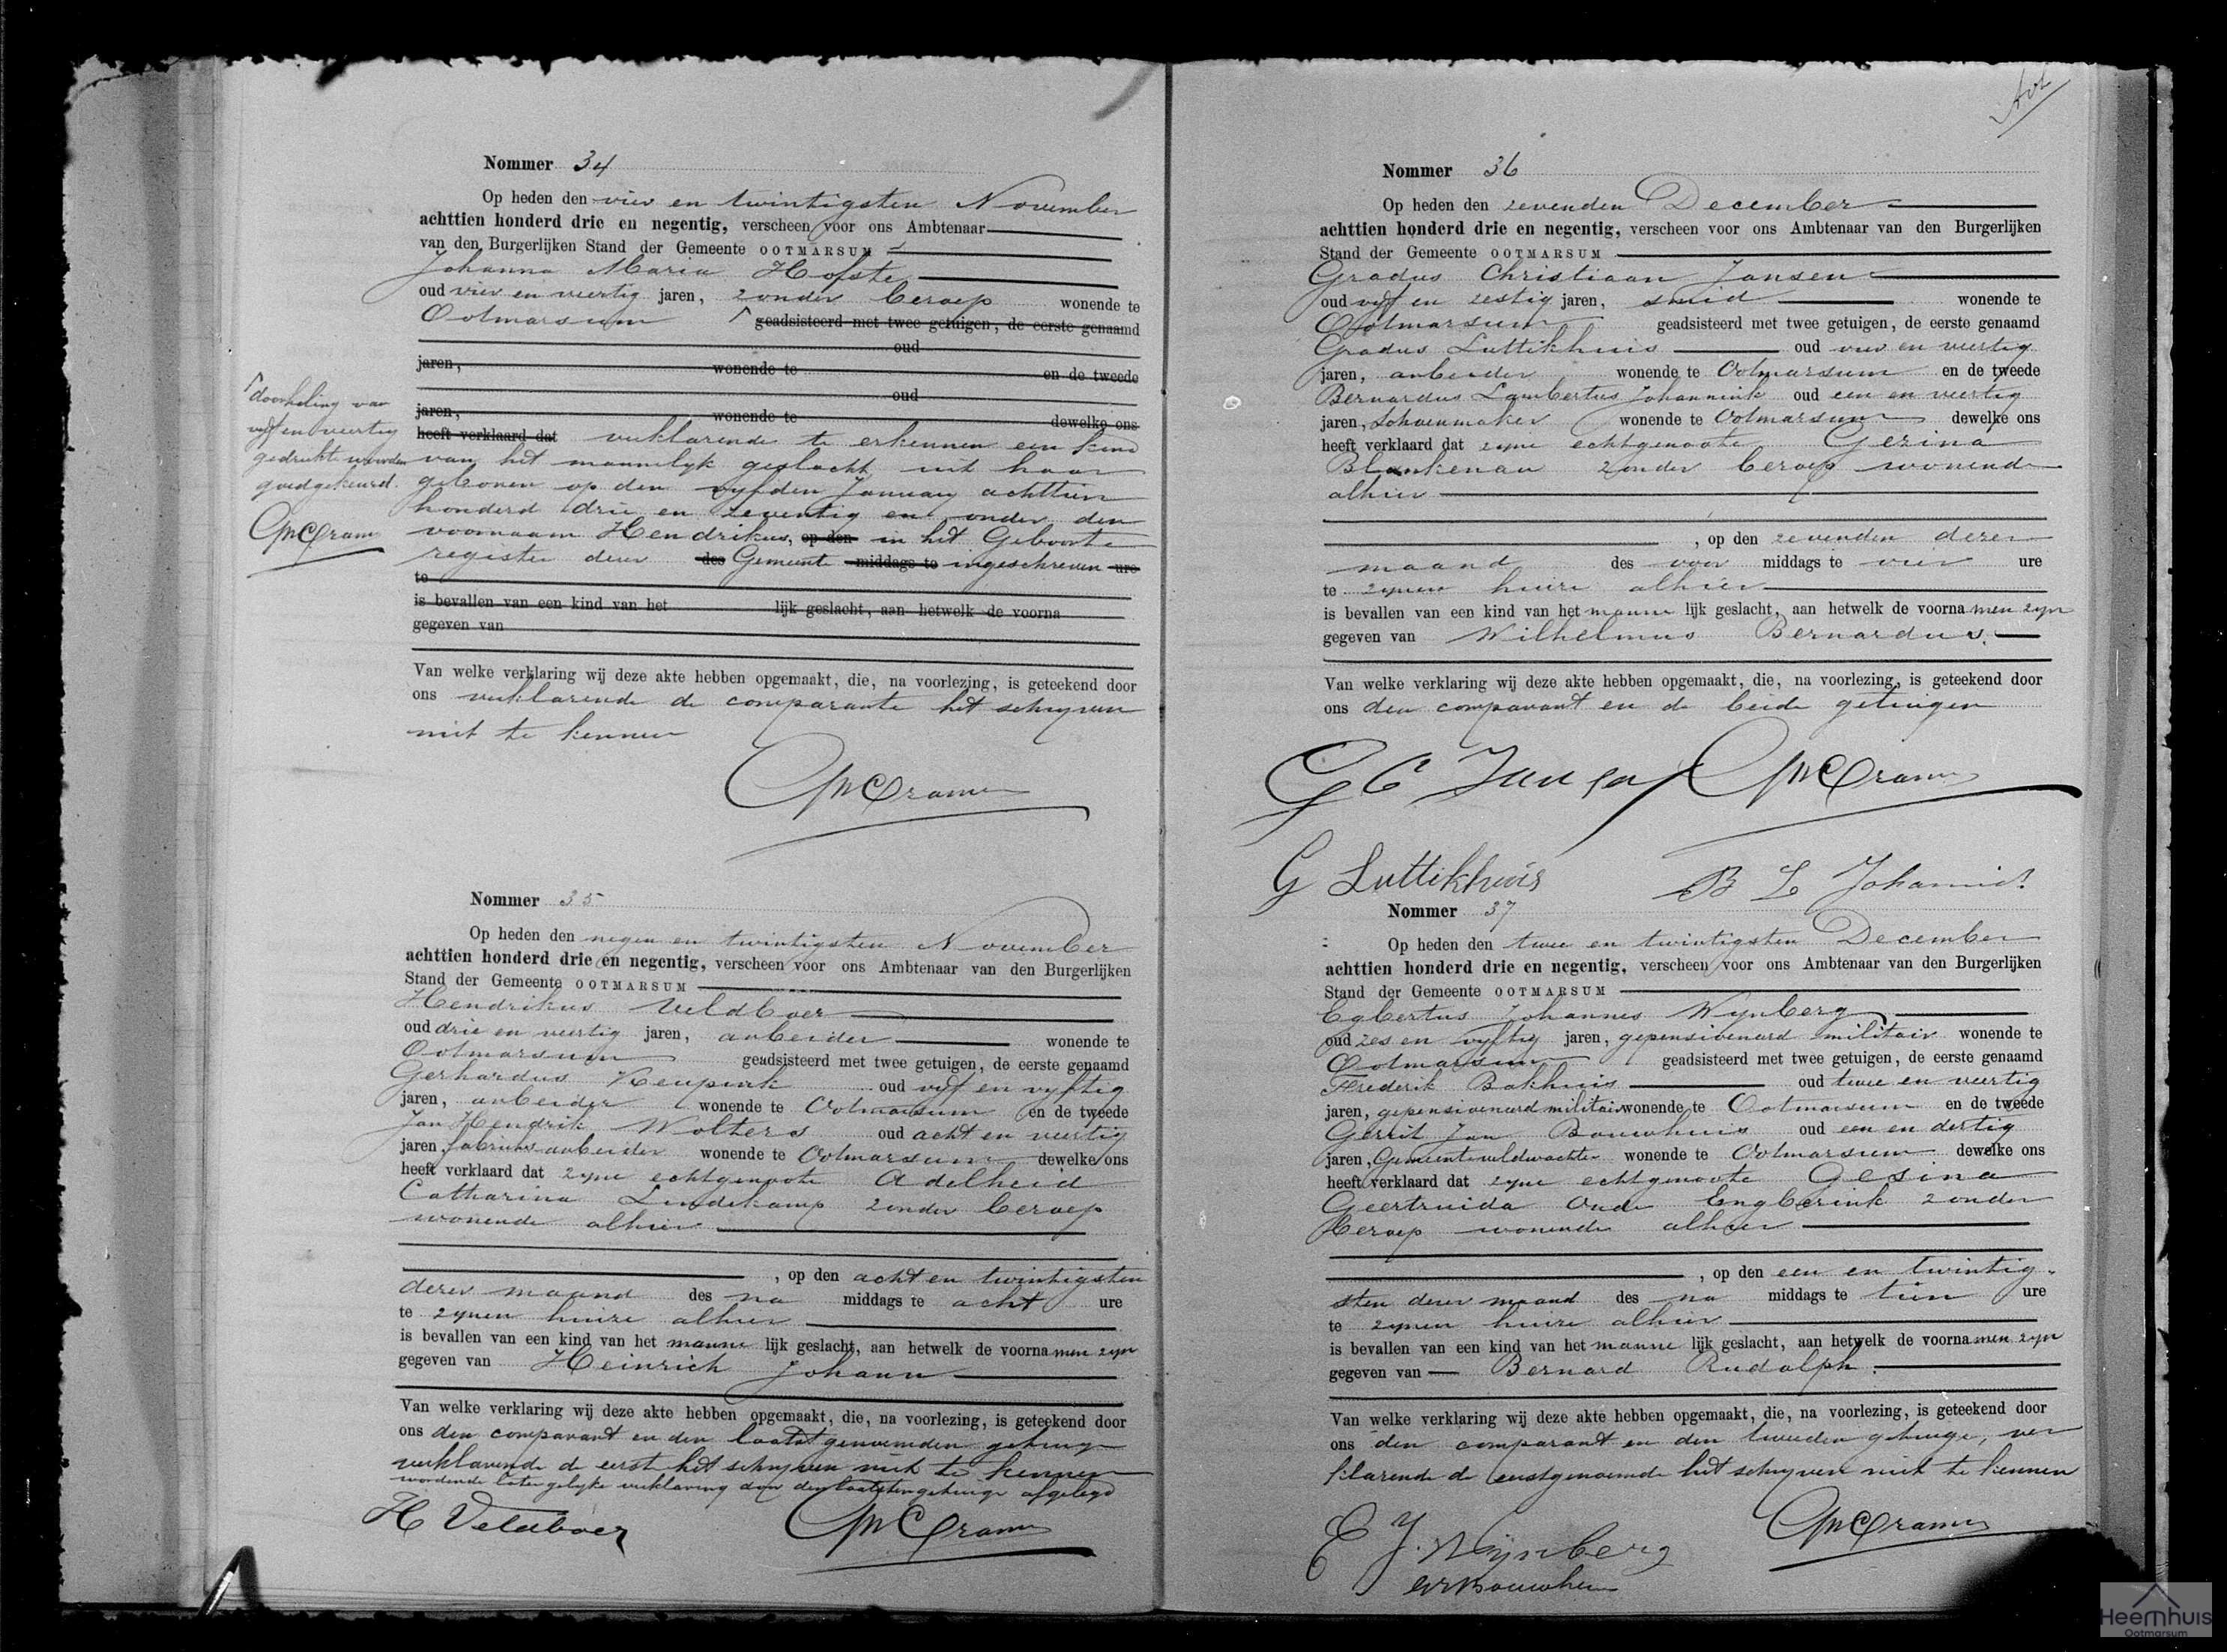 Nommer 34
Op heden den vier en twintigsten November
achttien honderd drie en negentig, verscheen voor ons Ambtenaar
van den Burgerlijken Stand der Gemeente OOTMARSUM
Johanna Maria Hofste
oud vier en veertig jaren, zonder beroep wonende te
Ootmarsum geadsisteerd met twee getuigen, de eerste genaamd
oud
jaren, wonende te en de tweede
oud
jaren, wonende te dewelke ons
heeft verklaard dat verklarende te erkennen een kind
van het mannelyk geslacht uit haar
geboren op den vyfden January achttien
honderd drie en zeventig en onder den
voornaam Hendrikus, op den in het Geboorte
register dezer des Gemeente middags te ingeschreven ure
te
is bevallen van een kind van het lijk geslacht, aan hetwelk de voorna
gegeven van
Van welke verklaring wij deze akte hebben opgemaakt, die, na voorlezing, is geteekend door
ons verklarende de comparante het schryven
niet te kennen
doorhaling van
vyf en veertig
gedrukte woorden
goedgekeurd.
Nommer 35
Op heden den negen en twintigsten November
achttien honderd drie en negentig, verscheen voor ons Ambtenaar van den Burgerlijken
Stand der Gemeente OOTMARSUM
Hendrikus Veldboer
oud drie en veertig jaren, arbeider wonende te
Ootmarsum geadsisteerd met twee getuigen, de eerste genaamd
Gerhardus Keupink oud vyf en vyftig
jaren, arbeider wonende te Ootmarsum en de tweede
Jan Hendrik Wolters oud acht en veertig
jaren, fabrieksarbeider wonende te Ootmarsum dewelke ons
heeft verklaard dat zyne echtgenoote Adelheid
Catharina Lindekamp zonder beroep
wonende alhier
, op den acht en twintigsten
dezer maand des na middags te acht ure
te zynen huize alhier
is bevallen van een kind van het manne lijk geslacht, aan hetwelk de voorna men zyn
gegeven van Heinrich Johann
Van welke verklaring wij deze akte hebben opgemaakt, die, na voorlezing, is geteekend door
ons den comparant en den laatstgenoemden getuige
verklarende de eerste het schryven niet te kennen
wordende later gelyke verklaring door den laatsten getuige afgelegd
H Veldboer
Nommer 36
Op heden den zevenden December
achttien honderd drie en negentig, verscheen voor ons Ambtenaar van den Burgerlijken
Stand der Gemeente OOTMARSUM
Gradus Christiaan Jansen
oud vyf en zestig jaren, smid wonende te
Ootmarsum geadsisteerd met twee getuigen, de eerste genaamd
Gradus Luttikhuis oud vier en veertig
jaren, arbeider wonende te Ootmarsum en de tweede
Bernardus Lambertus Johannink oud een en veertig
jaren, schoenmaker wonende te Ootmarsum dewelke ons
heeft verklaard dat zyne echtgenoote Gezina
Blankenau zonder beroep wonende
alhier
, op den zevenden dezer
maand des voor middags te vier ure
te zynen huize alhier
is bevallen van een kind van het manne lijk geslacht, aan hetwelk de voorna men zyn
gegeven van Wilhelmus Bernardus.
Van welke verklaring wij deze akte hebben opgemaakt, die, na voorlezing, is geteekend door
ons den comparant en de beide getuigen
G C Jansen
G Luttikhuis B L Johannink
Nommer 37
Op heden den twee en twintigsten December
achttien honderd drie en negentig, verscheen voor ons Ambtenaar van den Burgerlijken
Stand der Gemeente OOTMARSUM
Egbertus Johannes Wynberg
oud zes en vyftig jaren, gepensioneerd militair wonende te
Ootmarsum geadsisteerd met twee getuigen, de eerste genaamd
Frederik Bokhuis oud twee en veertig
jaren, gepensioneerd militair wonende te Ootmarsum en de tweede
Gerrit Jan Bouwhuis oud een en dertig
jaren, Gemeenteveldwachter wonende te Ootmarsum dewelke ons
heeft verklaard dat zyne echtgenoote Gesina
Geertruida Oude Engberink zonder
beroep wonende alhier
, op den een en twintig-
sten dezer maand des na middags te tien ure
te zynen huize alhier
is bevallen van een kind van het manne lijk geslacht, aan hetwelk de voorna men zyn
gegeven van Bernard Rudolph.
Van welke verklaring wij deze akte hebben opgemaakt, die, na voorlezing, is geteekend door
ons den comparant en den tweeden getuige, ver
klarende de eerstgenoemde het schryven niet te kennen
E J. Wijnberg
Heemhuis
Ootmarsum